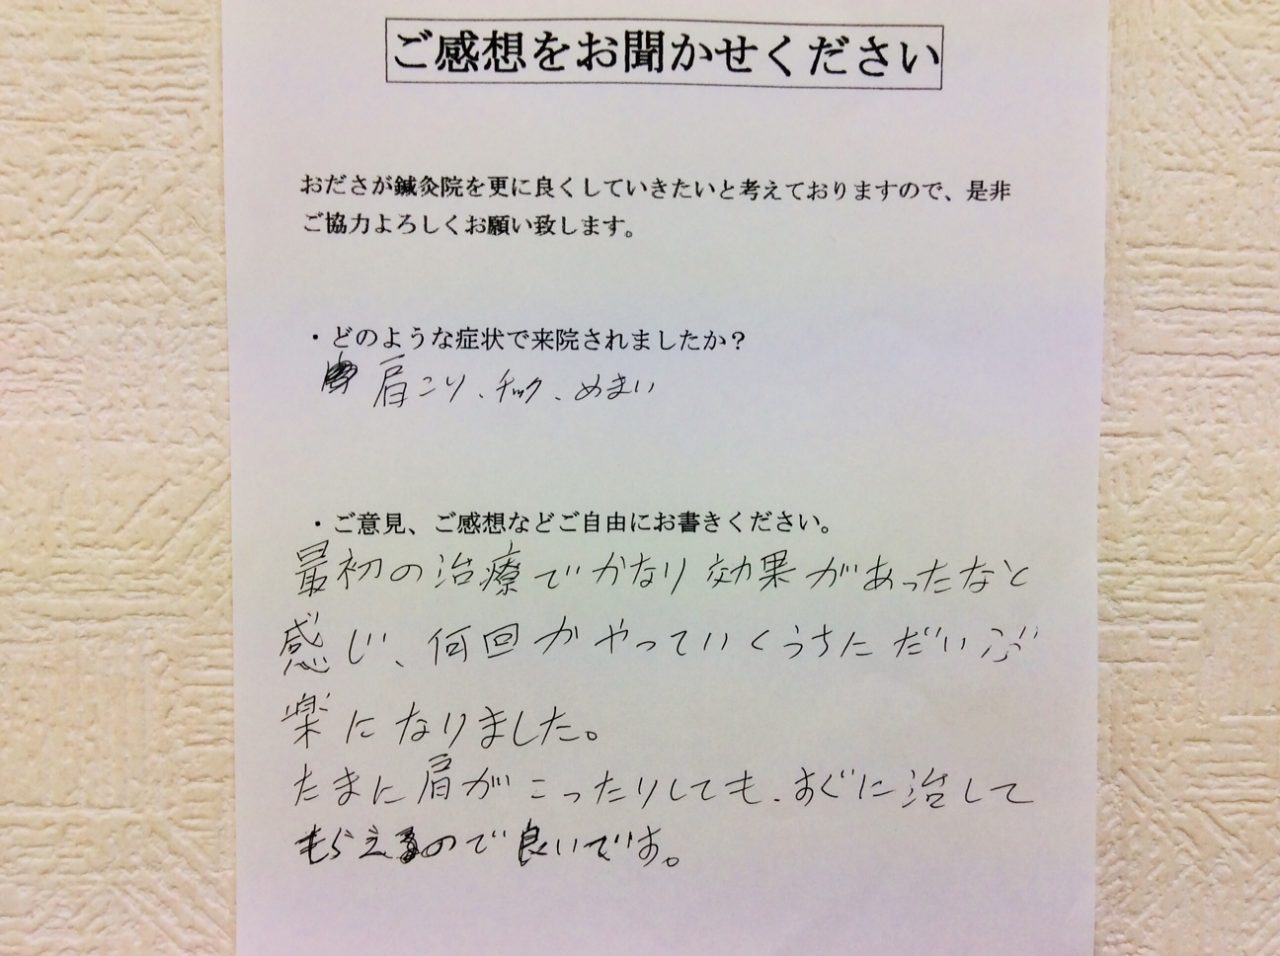 ご感想をお聞かせください
おださが鍼灸院を更に良くしていきたいと考えておりますので、是非
ご協力よろしくお願い致します。
・どのような症状で来院されましたか？
肩こり、チック、めまい
・ご意見、ご感想などご自由にお書きください。
最初の治療でかなり効果があったなと
感じ、何回かやっていくうちにだいぶ
楽になりました。
たまに肩がこったりしても、すぐに治して
もらえるので良いです。